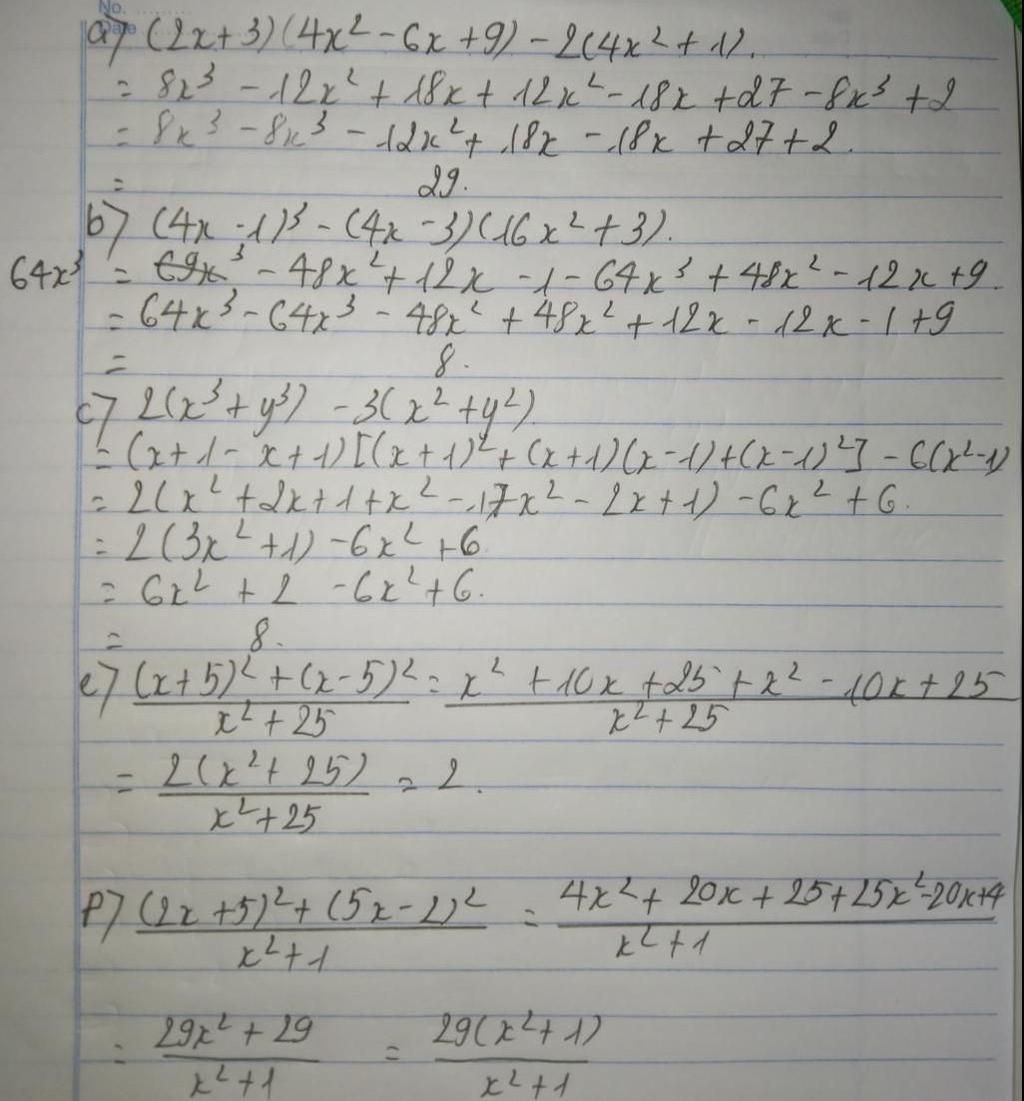 No.
Date
a) (2x+3)(4x² - 6x + 9) - 2(4x² + 1).
= 8x³ - 12x² + 18x + 12x² - 18x + 27 - 8x³ + 2
= 8x³ - 8x³ - 12x² + 18x - 18x + 27 + 2.
= 29.
b) (4x - 1)³ - (4x - 3)(16x² + 3).
64x³ = 69x³ - 48x² + 12x - 1 - 64x³ + 48x² - 12x + 9.
= 64x³ - 64x³ - 48x² + 48x² + 12x - 12x - 1 + 9
= 8.
c) 2(x³ + y³) - 3(x² + y²)
= (x + 1 - x + 1)[(x + 1)² + (x + 1)(x - 1) + (x - 1)²] - 6(x² - 1)
= 2(x² + 2x + 1 + x² - 17x² - 2x + 1) - 6x² + 6.
= 2(3x² + 1) - 6x² + 6
= 6x² + 2 - 6x² + 6.
= 8.
e) \frac{(x+5)² + (x-5)²}{x² + 25} = \frac{x² + 10x + 25 + x² - 10x + 25}{x² + 25}
= \frac{2(x² + 25)}{x² + 25} = 2.
f) \frac{(2x+5)² + (5x-2)²}{x² + 1} = \frac{4x² + 20x + 25 + 25x² - 20x + 4}{x² + 1}
= \frac{29x² + 29}{x² + 1} = \frac{29(x² + 1)}{x² + 1}